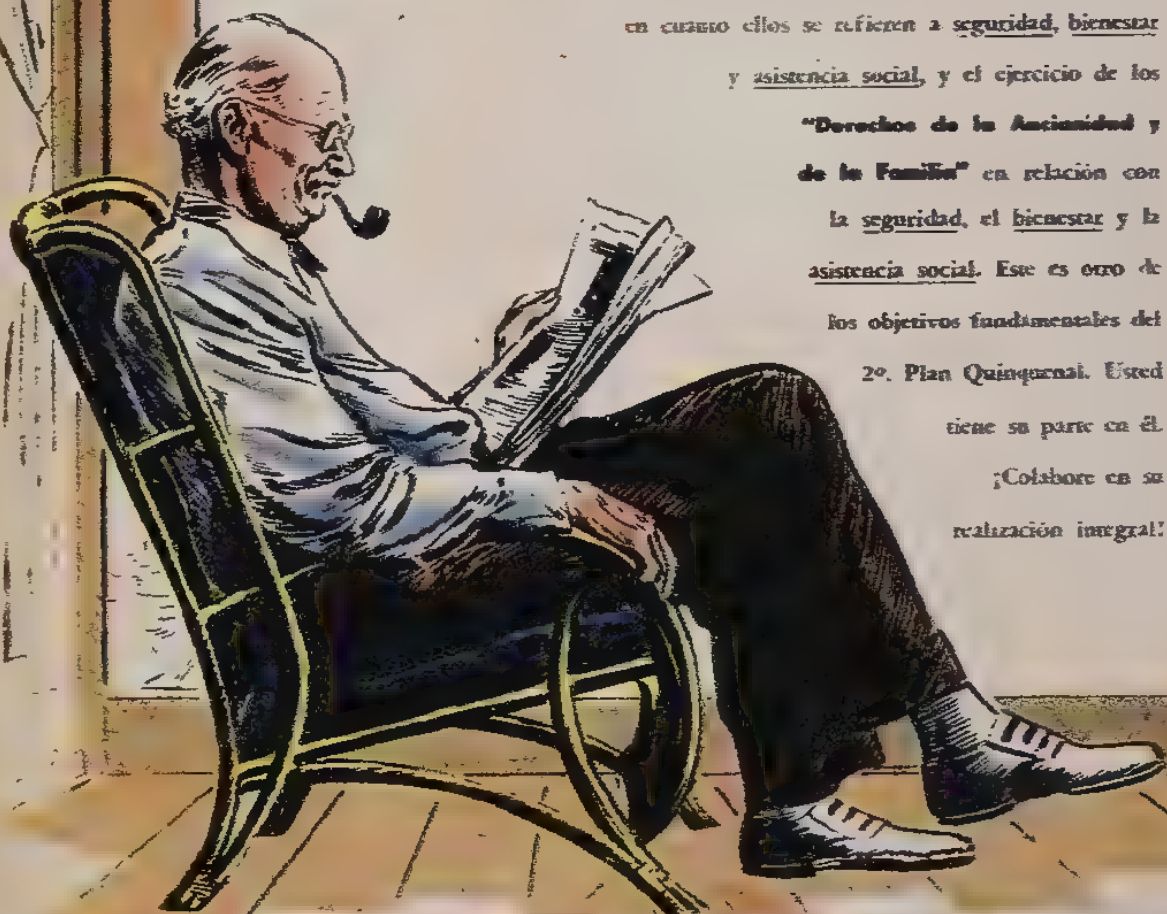 en cuanto ellos se refieren a seguridad, bienestar
y asistencia social, y el ejercicio de los
“Derechos de la Ancianidad y
de la Familia” en relación con
la seguridad, el bienestar y la
asistencia social. Este es otro de
los objetivos fundamentales del
2º. Plan Quinquenal. Usted
tiene su parte en él.
¡Colabore en su
realización integral!